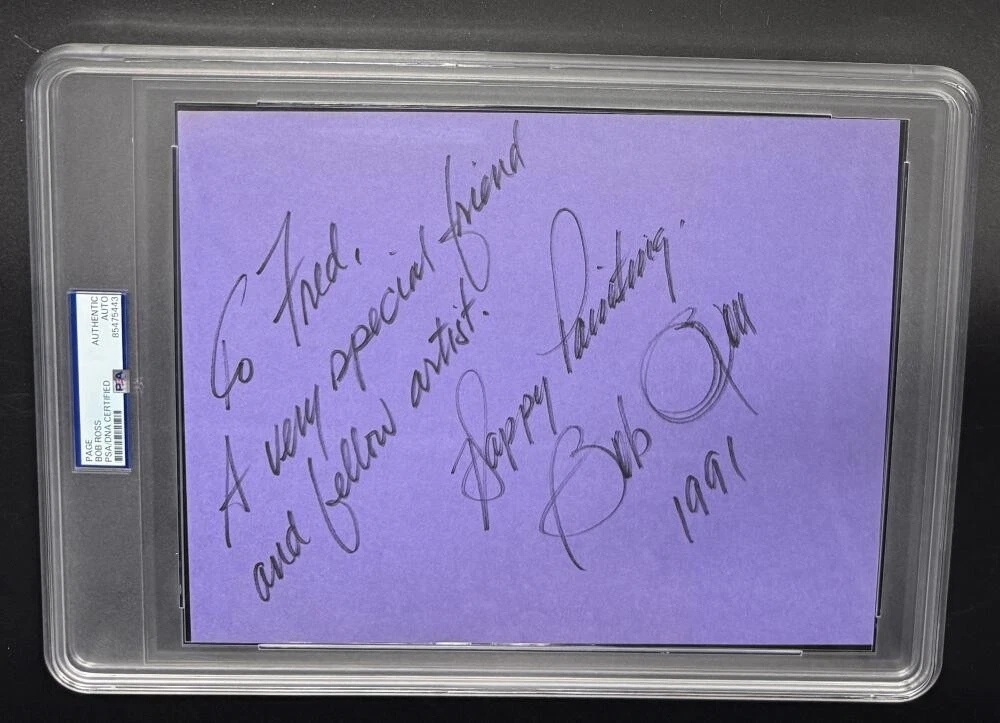 To Fred,
A very special friend
and fellow artist.
Happy Painting.
Bob Ross
1991
PAGE
BOB ROSS
PSA/DNA CERTIFIED
AUTHENTIC
AUTO
85475443
PSA